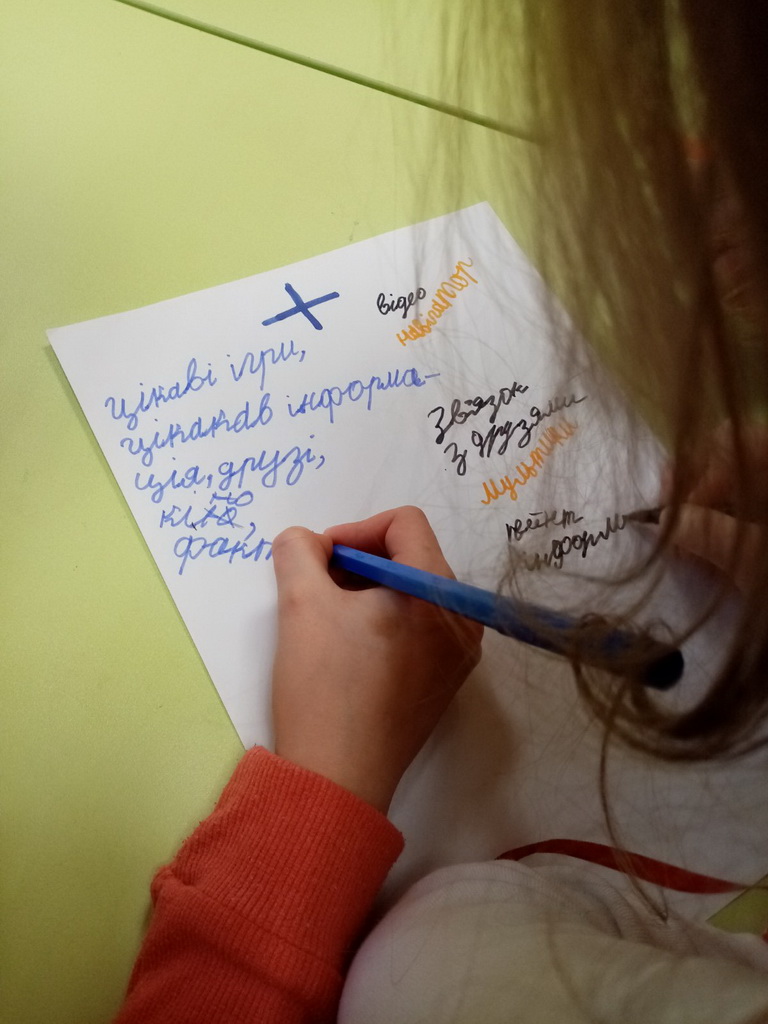 +
відео
навігатор
цікаві ігри,
цікакав інформа-
ція, друзі,
кіно,
факт
Звязок
з друзями
мультики
інформ